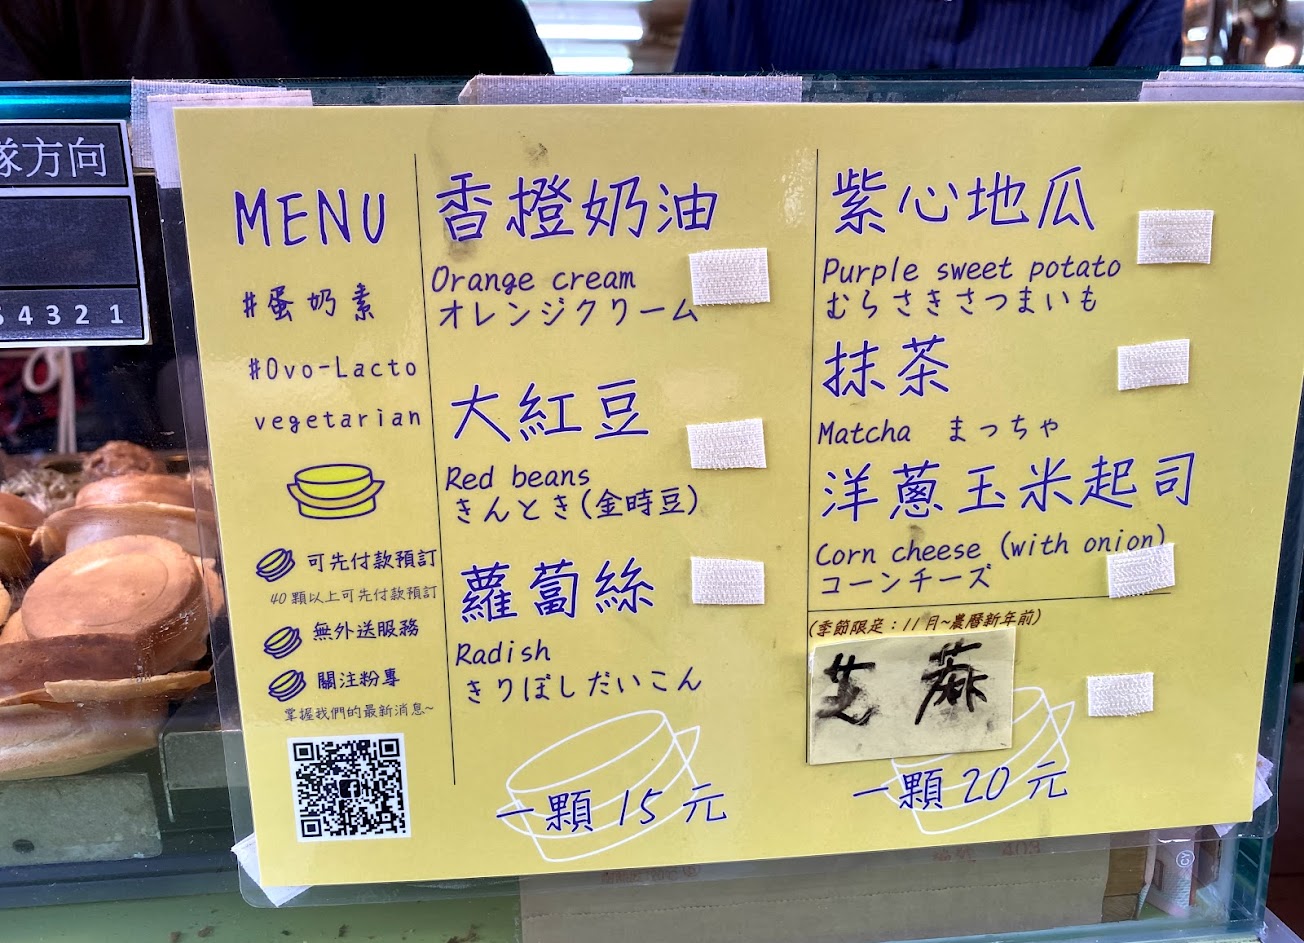 隊方向
54321
MENU
#蛋奶素
#Ovo-Lacto
vegetarian
可先付款預訂
40顆以上可先付款預訂
無外送服務
關注粉專
掌握我們的最新消息~
香橙奶油
Orange cream
オレンジクリーム
大紅豆
Red beans
きんとき(金時豆)
蘿蔔絲
Radish
きりぼしだいこん
一顆 15 元
紫心地瓜
Purple sweet potato
むらさきさつまいも
抹茶
Matcha まっちゃ
洋蔥玉米起司
Corn cheese (with onion)
コーンチーズ
(季節限定:11月~農曆新年前)
芝麻
一顆 20 元